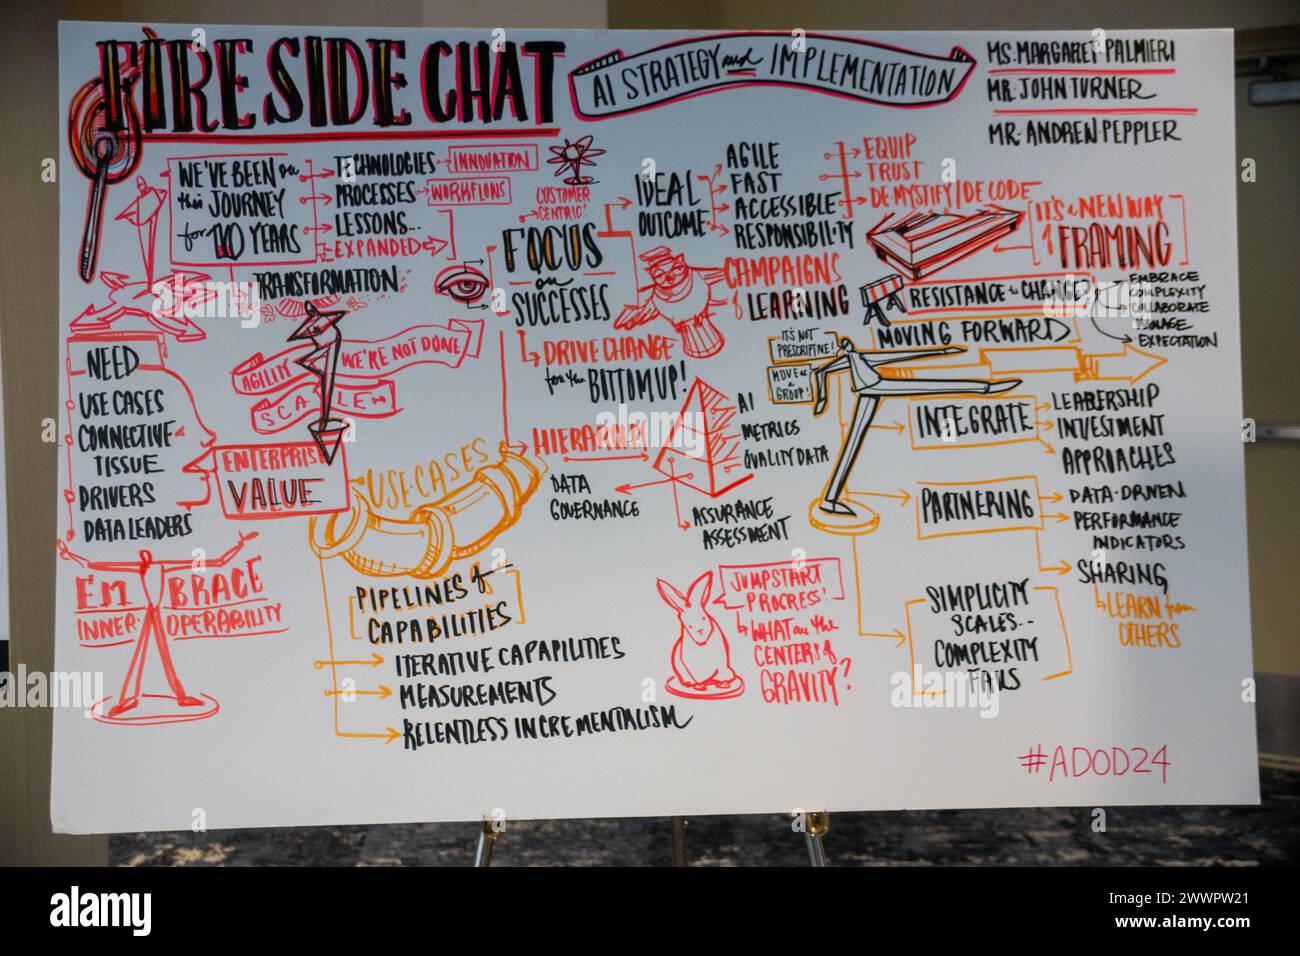 FIRE SIDE CHAT
AI STRATEGY and IMPLEMENTATION
MS. MARGARET PALMIERI
MR. JOHN TURNER
MR. ANDREN PEPPLER
WE'VE BEEN on
this JOURNEY
for 10 YEARS
TECHNOLOGIES
INNOVATION
PROCESSES
WORKFLOWS
LESSONS...
EXPANDED
TRANSFORMATION
CUSTOMER
CENTRIC!
FOCUS
on
SUCCESSES
DRIVE CHANGE
for the BOTTOM UP!
IDEAL
OUTCOME
AGILE
FAST
ACCESSIBLE
RESPONSIBILITY
EQUIP
TRUST
DE-MYSTIFY/DE CODE
CAMPAIGNS
of LEARNING
IT'S a NEW WAY
of FRAMING
RESISTANCE to CHANGE
EMBRACE
COMPLEXITY
COLLABORATE
EXPECTATION
IT'S NOT
PRESCRIPTIVE!
MOVE AS
A
GROUP!
MOVING FORWARD
NEED
USE CASES
CONNECTIVE
TISSUE
DRIVERS
DATA LEADERS
AGILITY
WE'RE NOT DONE
SCALE
ENTERPRISE
VALUE
EMBRACE
INNER-OPERABILITY
USE CASES
PIPELINES of
CAPABILITIES
ITERATIVE CAPABILITIES
MEASUREMENTS
RELENTLESS INCREMENTALISM
HIERARCHY
DATA
GOVERNANCE
AI
METRICS
QUALITY DATA
ASSURANCE
ASSESSMENT
JUMPSTART
PROGRESS!
WHAT are the
CENTERS of
GRAVITY?
INTEGRATE
LEADERSHIP
INVESTMENT
APPROACHES
PARTNERING
DATA-DRIVEN
PERFORMANCE
INDICATORS
SHARING,
LEARN from
OTHERS
SIMPLICITY
SCALES...
COMPLEXITY
FAILS
#ADOD24
alamy
Image ID: 2WRPW21
www.alamy.com